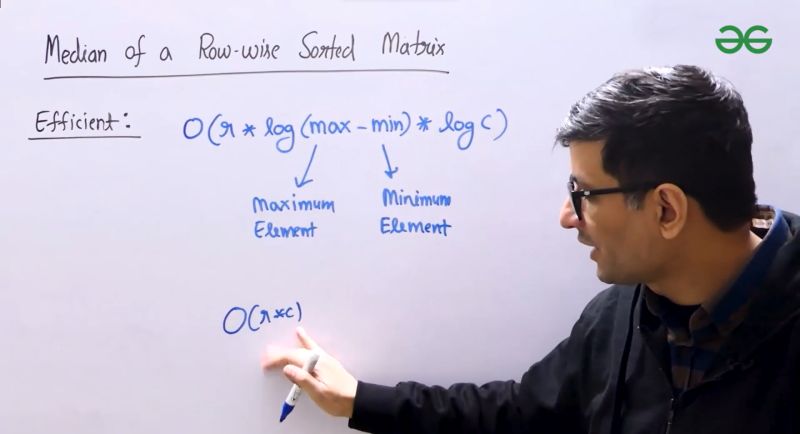 Median of a Row-wise Sorted Matrix
Efficient:
O(r * log(max - min) * log c)
Maximum Element
Minimum Element
O(r*c)